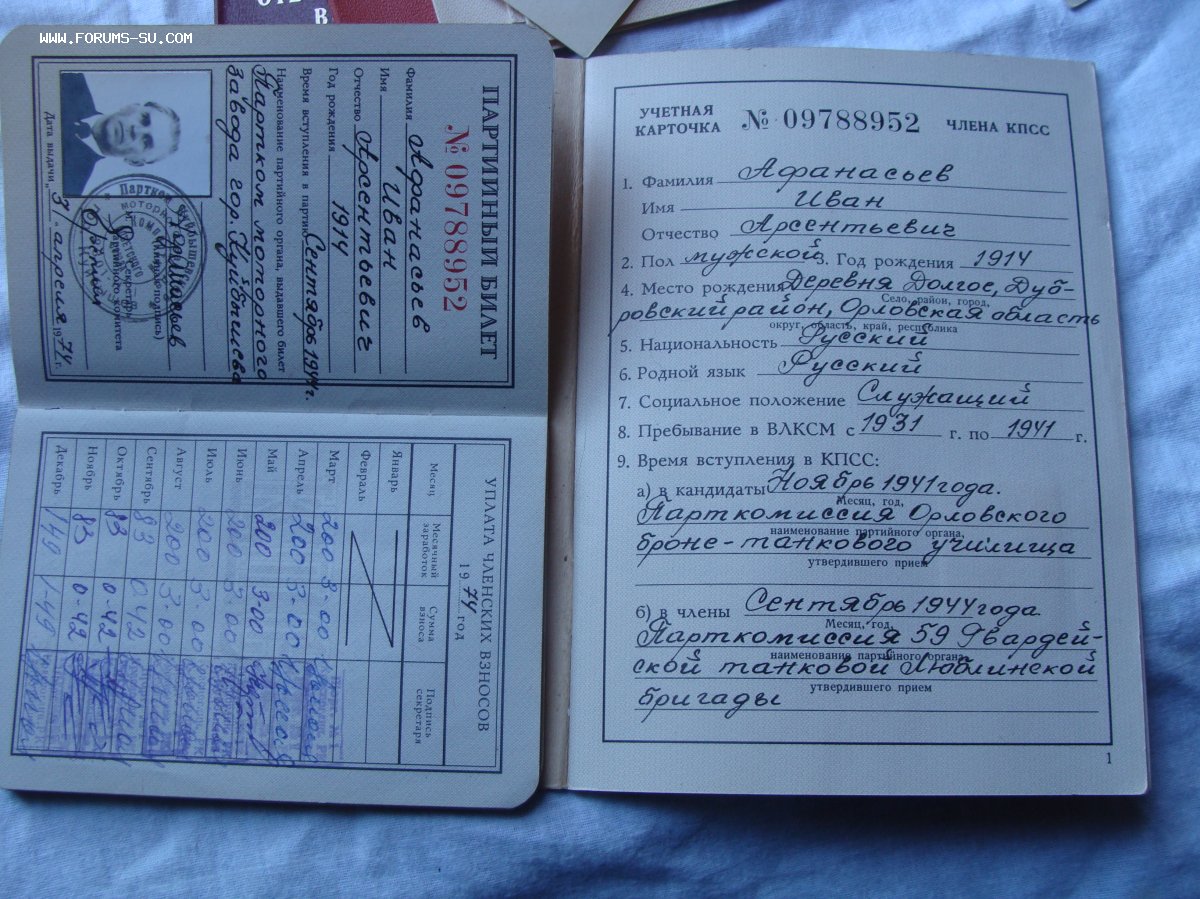 WWW.FORUMS-SU.COM
В
ПАРТИЙНЫЙ БИЛЕТ
№ 09788952
Фамилия Афанасьев
Имя Иван
Отчество Арсентьевич
Год рождения 1914
Время вступления в партию Сентябрь 1944г.
Наименование партийного органа, выдавшего билет
Партком моторного
завода гор. Куйбышева
Партком
(личная подпись)
секретарь
партийного комитета
Дата выдачи „31. апреля 1974 г.
1
УПЛАТА ЧЛЕНСКИХ ВЗНОСОВ
1974 год
Месяц Месячный заработок Сумма взноса Подпись секретаря
Январь
Февраль
Март 200 3-00
Апрель 200 3-00
Май 200 3-00
Июнь 200 3-00
Июль 200 3-00
Август 200 3-00
Сентябрь 83 0-42
Октябрь 83 0-42
Ноябрь 83 0-42
Декабрь 149 1-49
УЧЕТНАЯ КАРТОЧКА № 09788952 ЧЛЕНА КПСС
1. Фамилия Афанасьев
Имя Иван
Отчество Арсентьевич
2. Пол мужской 3. Год рождения 1914
4. Место рождения Деревня Долгое, Дуб-
Село, район, город,
ровский район, Орловская область
округ, область, край, республика
5. Национальность Русский
6. Родной язык Русский
7. Социальное положение Служащий
8. Пребывание в ВЛКСМ с 1931 г. по 1941 г.
9. Время вступления в КПСС:
а) в кандидаты Ноябрь 1941 года.
Месяц, год,
Парткомиссия Орловского
наименование партийного органа,
броне-танкового училища
утвердившего прием
б) в члены Сентябрь 1944 года.
Месяц, год,
Парткомиссия 59 Гвардей-
наименование партийного органа,
ской танковой Люблинской
утвердившего прием
бригады
1